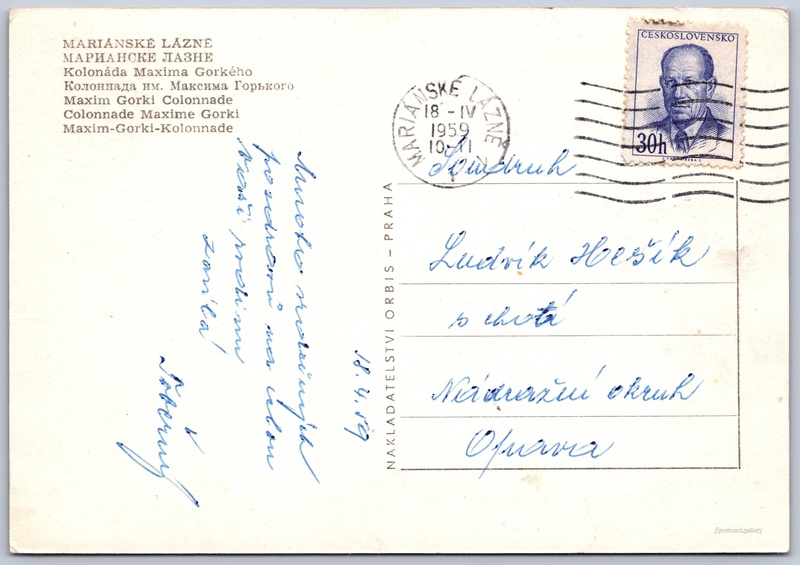 MARIÁNSKÉ LÁZNĚ
МАРИАНСКЕ ЛАЗНЕ
Kolonáda Maxima Gorkého
Колоннада им. Максима Горького
Maxim Gorki Colonnade
Colonnade Maxime Gorki
Maxim-Gorki-Kolonnade
MARIÁNSKÉ LÁZNĚ
18 -IV
1959
10-11
ČESKOSLOVENSKO
30h
Soudruh
Ludvík Hešík
s chotí
Nádražní okruh
Opava
NAKLADATELSTVÍ ORBIS – PRAHA
18. 4. 59
Mnoho srdečných
pozdravů na celou
Vaši
zasílá